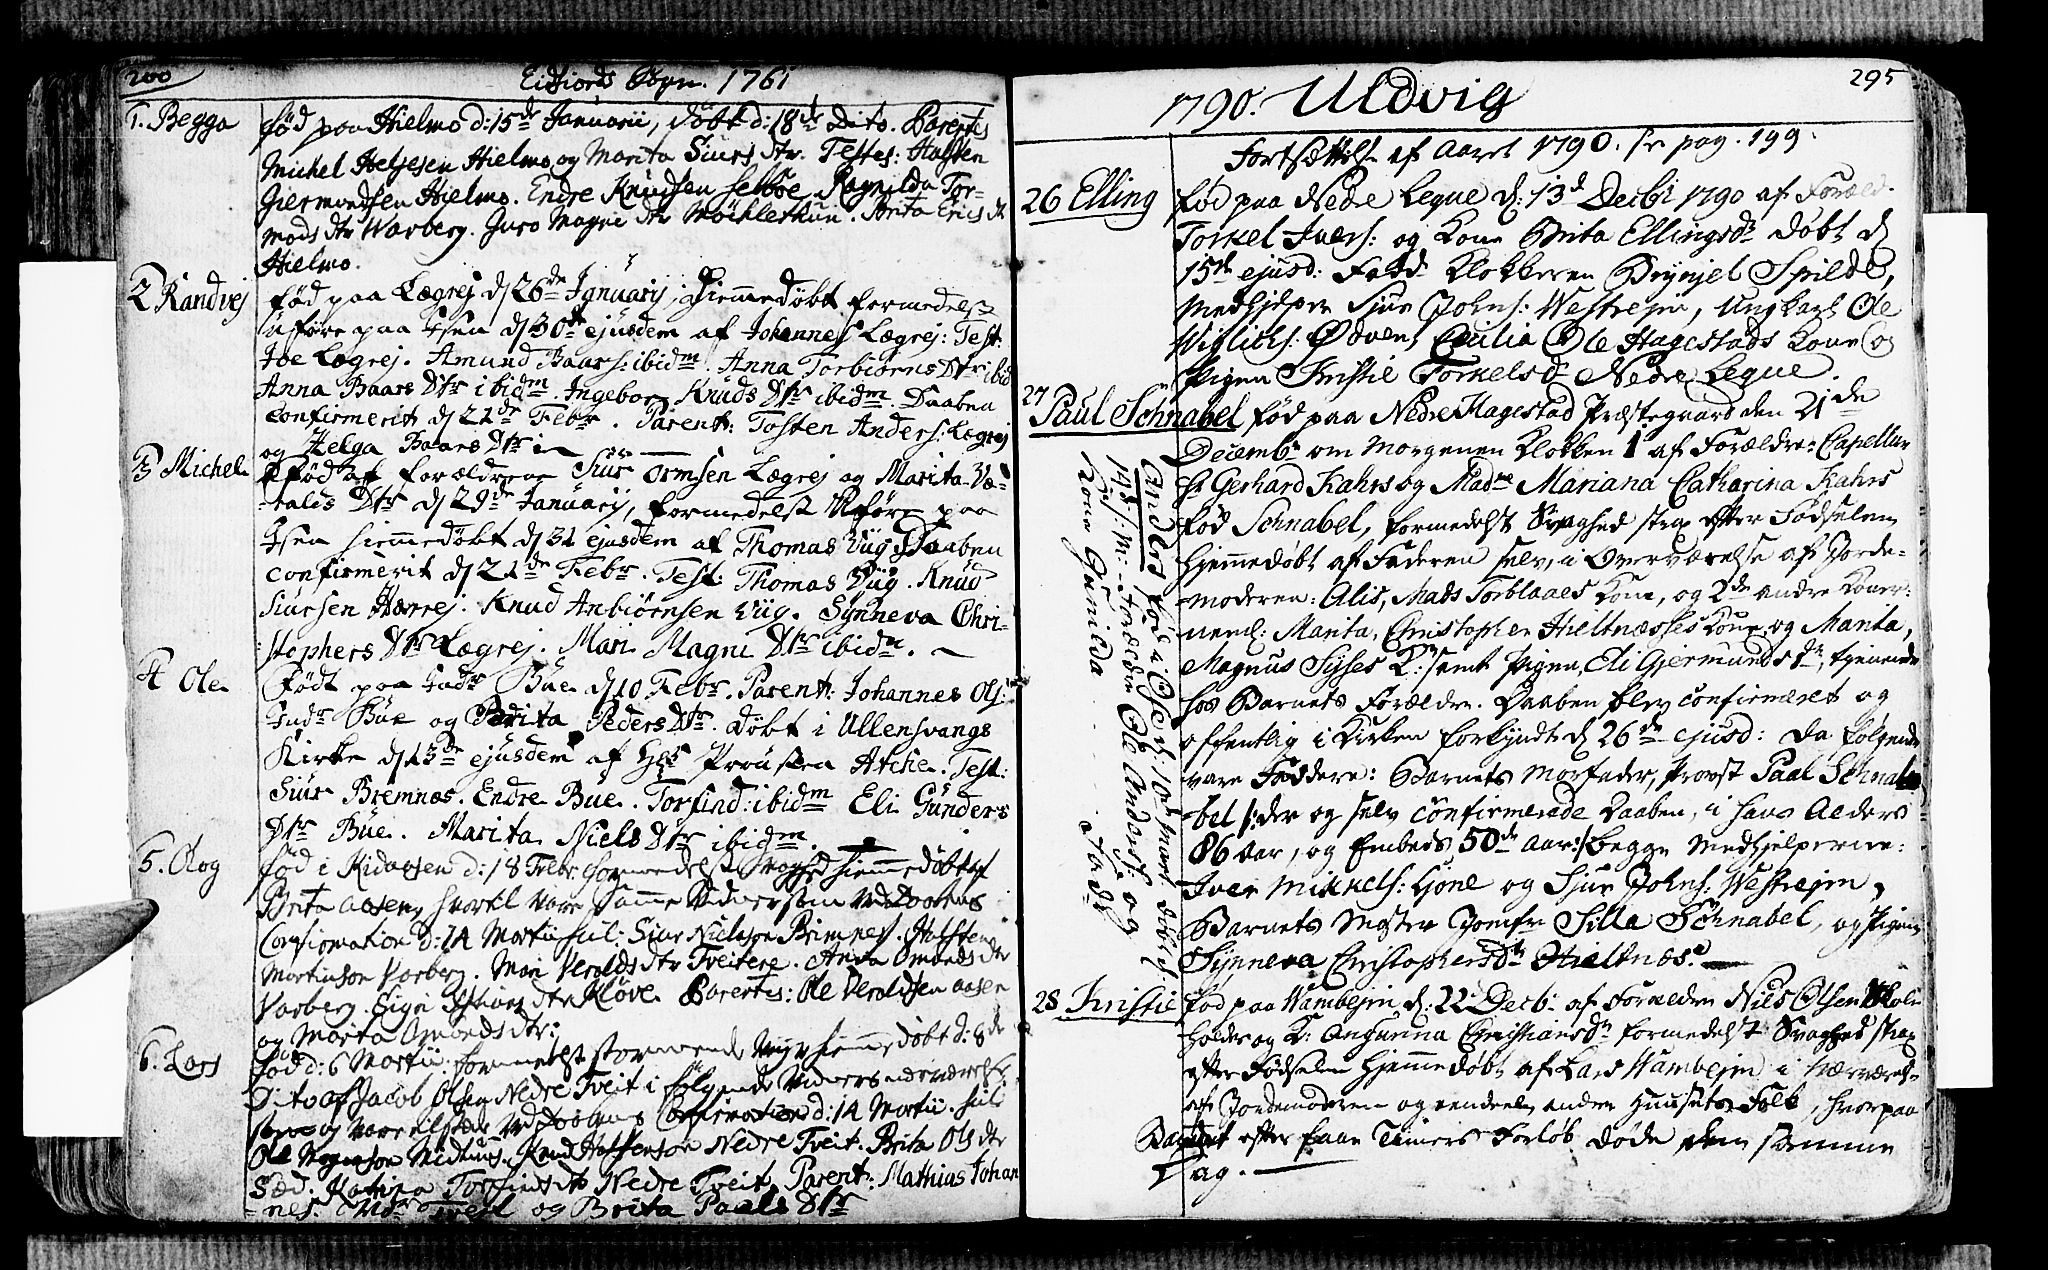 200
Eidfiords Sogn. 1761
1. Begga
fød paa Hielmo d: 15de Januarii, døbt d: 18de Dito. Parentes
Michel Helgesen Hielmo, og Marita Siurs dtr. Testes: Hasten
Giermundsen Hielmo. Endre Knudsen Ragnilda Tor-
mods dtr Warberg. Guro Magne dtr Brita Erics dtr
Hielmo.
2 Randvej
fød paa Lægrej d 26de Januarij, Hiemmedøbt formedelst
Uføre paa Isen d 30te ejusdem af Johannes Lægrej: Test:
Joe Lægrej. Amund Baars: ibidm. Anna Torbiørns Dtr ibid
Anna Baars Dtr ibidm. Ingebor Knuds Dtr ibidm. Daaben
confirmerit d 21de Febr. Parent: Tosten Anders: Lægrej
og Helga Baars Dtr
3 Michel
fød af forældrene Siur Ormsen Lægrej og Marita Væ-
ralds Dtr d 29de Januarij, formedelst Uføre paa
Isen hiemmedøbt d 31 ejusdem af Thomas Viig. Daaben
confirmerit d 21de Febr. Test: Thomas Viig. Knud
Siursen Hærrej. Knud Anbiørnsen Viig. Synneva Chri-
stophers Dtr Lægrej. Mari Magne Dtr ibidm.
4 Ole
Født paa Indr Bue d 10 Febr. Parent: Johannes Ols:
Indr Bue og Brita Peders Dtr. Døbt i Ullensvangs
Kirke d 13de ejusdem af Hr Prousten Atche. Test:
Siur Bremnæs. Endre Bue. Torfind: ibidm Eli Gunders
Dtr Bue. Marita Niels Dtr ibidm.
5. Aog
fød i d: 18 Febr. formedelst Svaghed hiemmedøbt af
Brita Aasen, hvortil vare samme Vidner som ved Daabens
Confirmation d: 14 Martii Siur Nielsson Brimnes. Halsten
Martinson Varberg. Mari Verolds dtr Tveitere. Anna Omunds dtr
Varberg. Sigri dtr Kløve. Parentes: Ole Veroldsen Aasen
og Marita Omunds dtr:
6. Lars
fød d: 6 Martii: formedelst stormende Veyr hiemmedøbt d: 8de
Dito af Jacob Olsen Nedre Tveit i følgende Vidners nærværelse
som og vare tilstæde ved Daabens Confirmation d: 14 Martii.
Ole Knud Halstenson Nedre Tveit. Brita Ols dtr
Sæd. Torfinds dtr Nedre Tveit. Parent: Mathias Johan
nes: Tveit og Brita Paals Dtr
295
1790. Uldvig
Fortsættelse af Aaret 1790. se pag. 199.
26 Elling
fød paa Nedre Leque d. 13de Decbr 1790 af Foræld.
Torkel Ivers: og Kone Brita Ellingsdr døbt d
15de ejusd: Fadd. Klokkeren Brynjel Spilde,
Medhjelper Sjur Johns: Westrejm, Ungkarl Ole
Ødven, Cecilia Ole Hagestads Kone og
Pigen Kristie Torkelsdr Nedre Leque.
27
Paul Schnabel fød paa Nedre Hagestad Præstegaard den 21de
Decembr om Morgenen Klokken 1 af Forældre: Capellan
Hr Gerhard Kahrs og Madme Mariana Catharina Kahrs
fød Schnabel, formedelst Svaghed strax efter Fødselen
hjemmedøbt af Faderen selv, i Overværelse af Jorde-
moderen: Alis, Mads Torblaaes Kone, og 2de andre Koner:
neml: Marita, Christopher Hieltnæsses Kone og Marita,
Magnus Syses K: samt Pigen, Eli Gjermundsdr, tjenende
hos Barnets Forældre. Daaben blev confirmeret og
offentlig i Kirken forkyndt d 26de ejusd: da følgende
vare Faddere: Barnets Morfader, Provst Paul Schna-
bel /: der og selv confirmerede Daaben, i hans Alders
86 Aar, og Embeds 50de Aar:/ begge Medhjelperne:
Iver Mikkels: Hjone og Sjur Johns: Westrejm,
Barnets Moster Jomfr Silla Schnabel, og Pigen
Synneva Christophersdr Hieltnæs.
Anders fød i Osse d: 10de Marts døbt
14de Forældre Ole Anders: og
Kone Gunilda
28. Kristie
fød paa Wambejm d: 22 Decb: af Forældre Niels Olsen Skole
holder og K: Angunna Christiansdr formedelst Svaghed strax
efter Fødselen hjemmedøbt af Lars Wambejm i Nærværelse
af Jordemoderen og eendeel andre Huusets Folk, hvorpaa
Barnet efter faae Timers Forløb døde den samme
Dag.